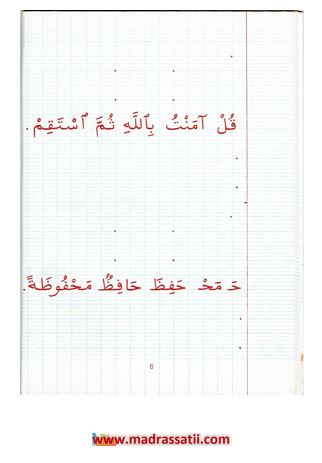 قُلْ آمَنْتُ بِٱللَّهِ ثُمَّ ٱسْتَقِمْ.
حَـ مَحْـ حَفِظَ حَافِظٌ مَحْفُوظَةً.
6
www.madrassatii.com